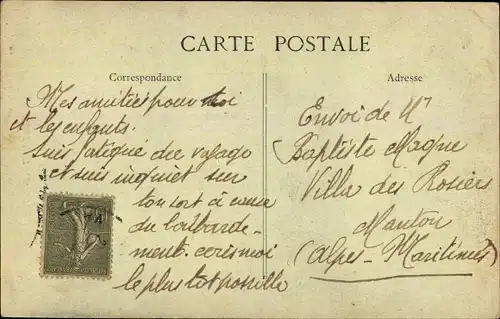 CARTE POSTALE
Correspondance
Mes amitiés pour toi
et les enfants.
Suis fatigué du voyage
et suis inquiet sur
ton sort à cause
du bombarde-
ment. ecris moi
le plus tot possible
Adresse
Envoi de Mr
Baptiste Magne
Villa des Rosiers
Manton
(Alpes-Maritimes)